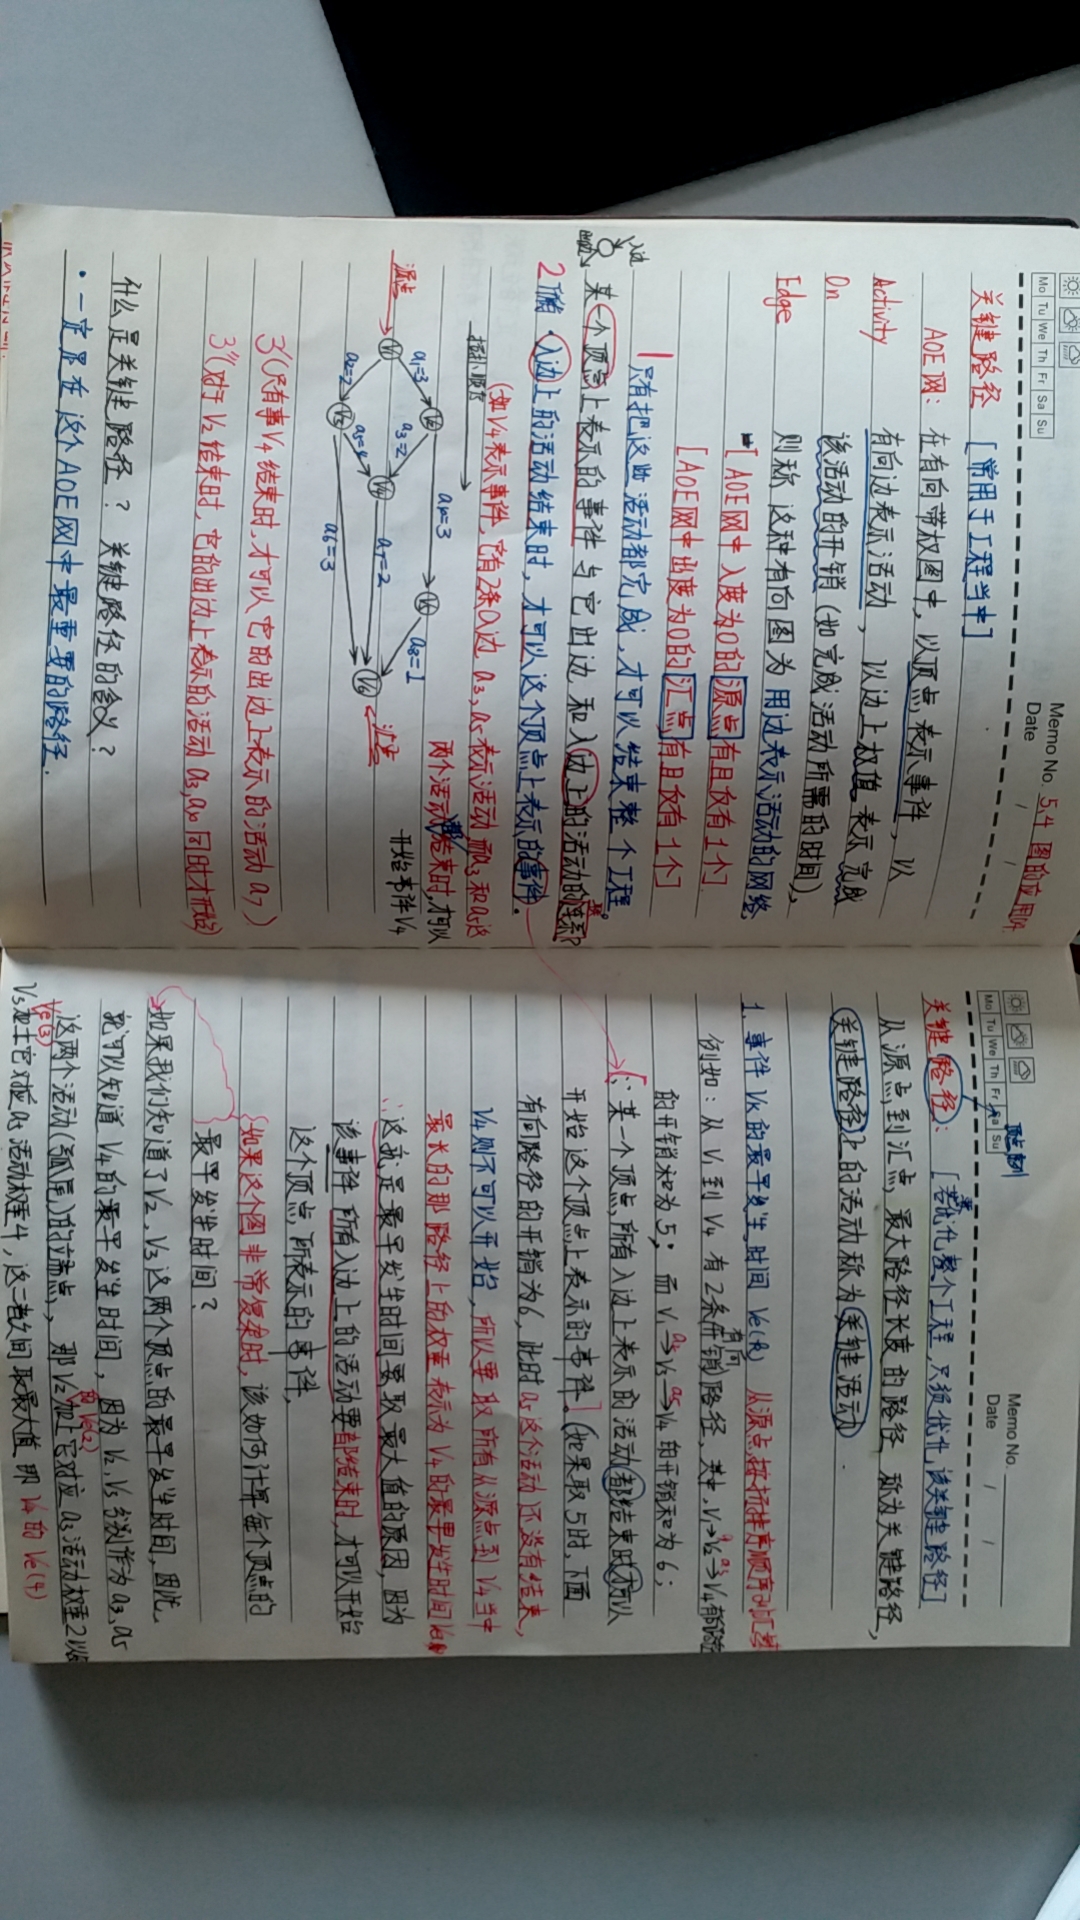 Memo No. 5.4 图的应用
Mo Tu We Th Fr Sa Su
Date / /
关键路径 [常用于工程当中]
AOE网: 在有向带权图中, 以顶点表示事件, 以
Activity 有向边表示活动, 以边上权值表示完成
On 该活动的开销 (如完成活动所需的时间),
Edge 则称这种有向图为用边表示活动的网络
[AOE网中入度为0的源点有且仅有1个]
[AOE网中出度为0的汇点有且仅有1个]
1 只有把这些活动都完成, 才可以结束整个工程。
入边
出边
某一个顶点上表示的事件与它出边和入边上的活动的关系?
2 所有入边上的活动结束时, 才可以这个顶点上表示的事件.
(如V4表示事件, 它有2条入边 a3, a5表示活动 而a3和a5这
两个活动都结束时, 才可以
开始事件V4
拓扑顺序
源点
V1 V2 V3 V4 V5 V6
a1=3
a2=2
a3=2
a4=3
a5=4
a6=3
a7=2
a8=1
汇点
3'(只有事V4结束时, 才可以它的出边上表示的活动a7)
3''(对于V2结束时, 它的出边上表示的活动a3,a4同时才开始)
什么是关键路径? 关键路径的含义?
· 一定是在这个AOE网中最重要的路径.
Memo No.
Mo Tu We Th Fr Sa Su
Date / /
关键路径: [若要优化整个工程, 只须优化该关键路径]
从源点到汇点, 最大路径长度的路径 称为关键路径,
关键路径上的活动称为关键活动.
1. 事件Vk的最早发生时间 Ve(k) 从源点按拓扑排序顺序到汇点
例如: 从V1到V4 有2条有向路径, 其中, V1→a1V2→a3V4
的开销和为5. 而V1→a2V3→a5V4的开销和为6;
[∵某一个顶点所有入边上表示的活动都结束时才可以
开始这个顶点上表示的事件.] (如果取5时, 下面
有向路径的开销为6, 此时a5这个活动还没有结束,
V4则不可以开始, 所以要取所有从源点到V4当中
最长的那路径上的权重表示为V4的最早发生时间
∴这就是最早发生时间要取最大值的原因, 因为
该事件所有入边上的活动要都结束时, 才可以开始
这个顶点所表示的事件,
{如果这个图非常复杂时, 该如何计算每个顶点的
最早发生时间?
→如果我们知道了V2, V3这两个顶点的最早发生时间, 因此,
就可以知道V4的最早发生时间, 因为V2, V3分别作为a3,a5
这两个活动(弧尾)的端点, 那V2的Ve(2)加上它对应a3活动权重2以及
V3 Ve(3)加上它对应a5活动权重4, 这二者之间取最大值, 即V4的Ve(4)